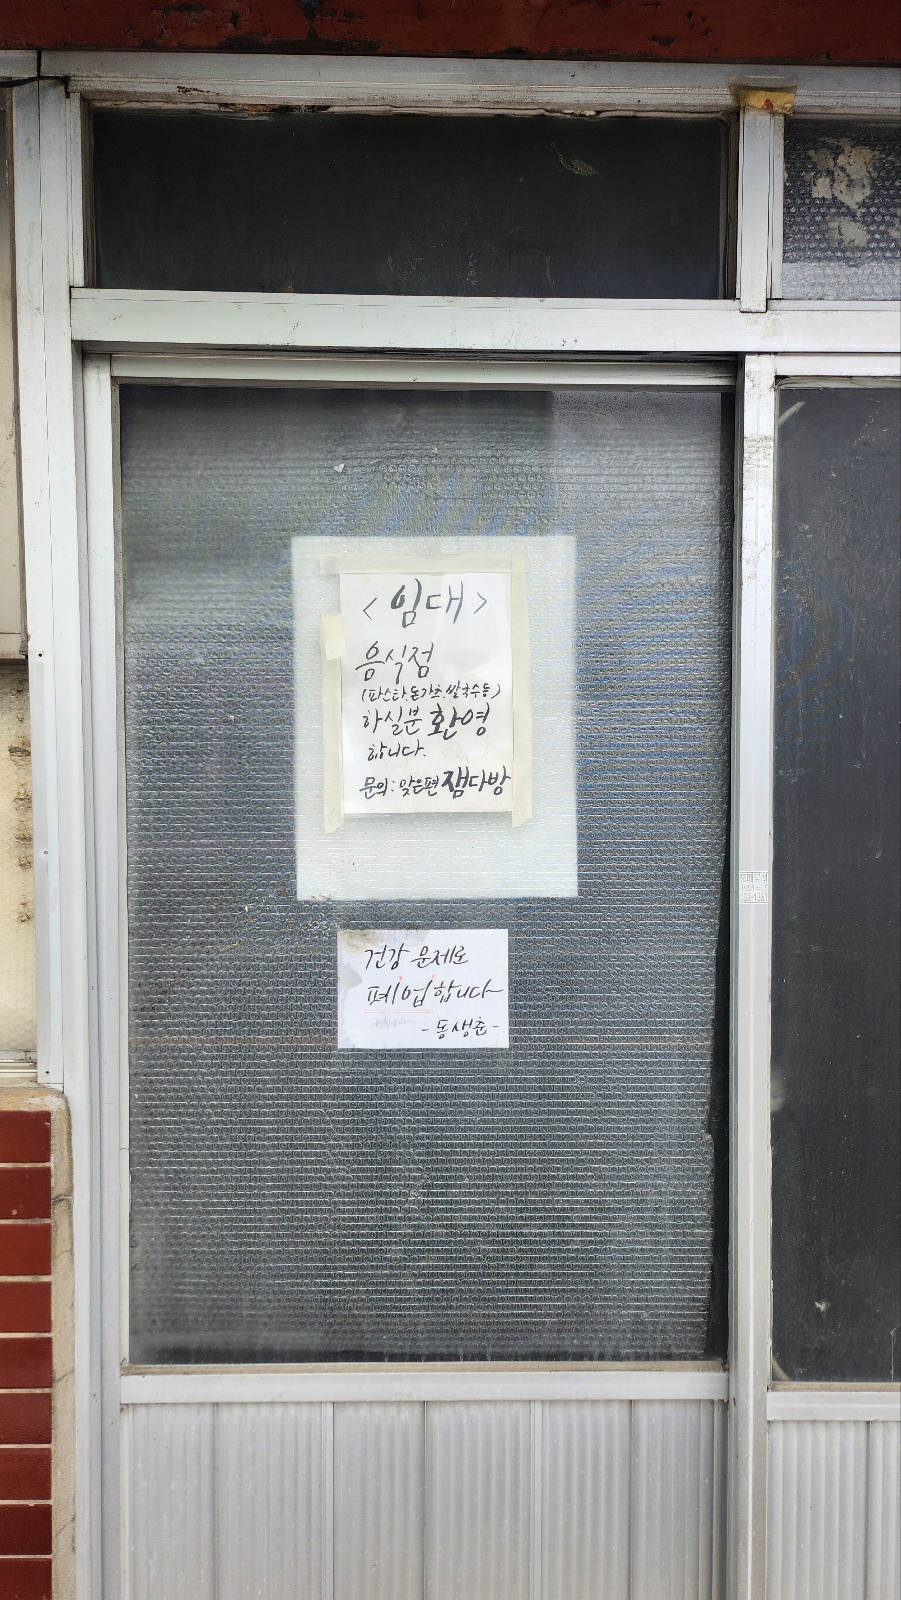 <임대>
음식점
(파스타.돈가츠.쌀국수등)
하실분 환영
합니다.
문의: 맞은편 잼다방
건강 문제로
폐업합니다
- 동생춘 -